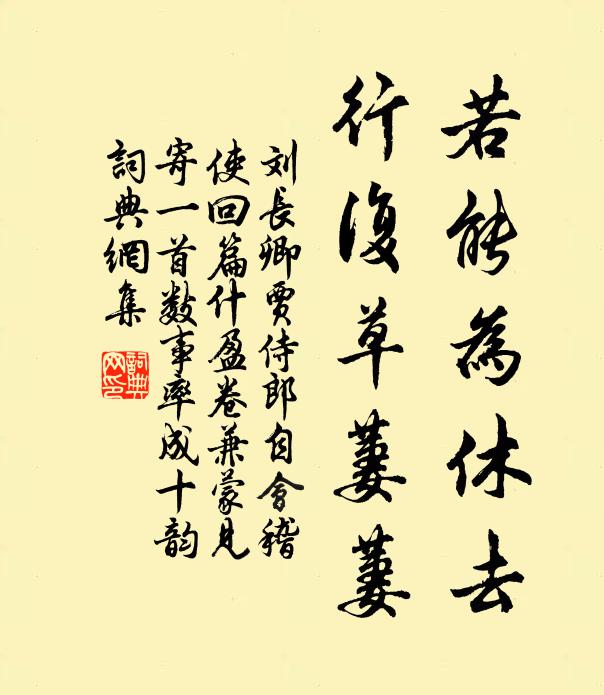 若能為休去
行復草萋萋
刘長卿賈侍郎自會稽
使回篇什盈卷兼蒙見
寄一首數事率成十韵
詞典網集
詞典
网印